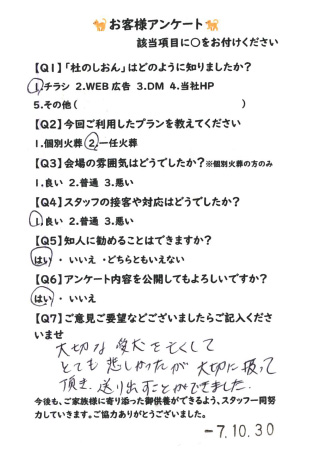 お客様アンケート
該当項目に○をお付けください
【Q1】「杜のしおん」はどのように知りましたか?
1.チラシ 2.WEB広告 3.DM 4.当社HP
5.その他( )
【Q2】今回ご利用したプランを教えてください
1.個別火葬 2.一任火葬
【Q3】会場の雰囲気はどうでしたか?※個別火葬の方のみ
1.良い 2.普通 3.悪い
【Q4】スタッフの接客や対応はどうでしたか?
1.良い 2.普通 3.悪い
【Q5】知人に勧めることはできますか?
はい ・ いいえ ・どちらともいえない
【Q6】アンケート内容を公開してもよろしいですか?
はい ・ いいえ
【Q7】ご意見ご要望などございましたらご記入くださ
いませ
大切な愛犬を亡くして
とても悲しかったが大切に扱って
頂き、送り出すことができました。
今後も、ご家族様に寄り添った御供養ができるよう、スタッフ一同努
力していきます。ご協力ありがとうございました。
-7.10.30